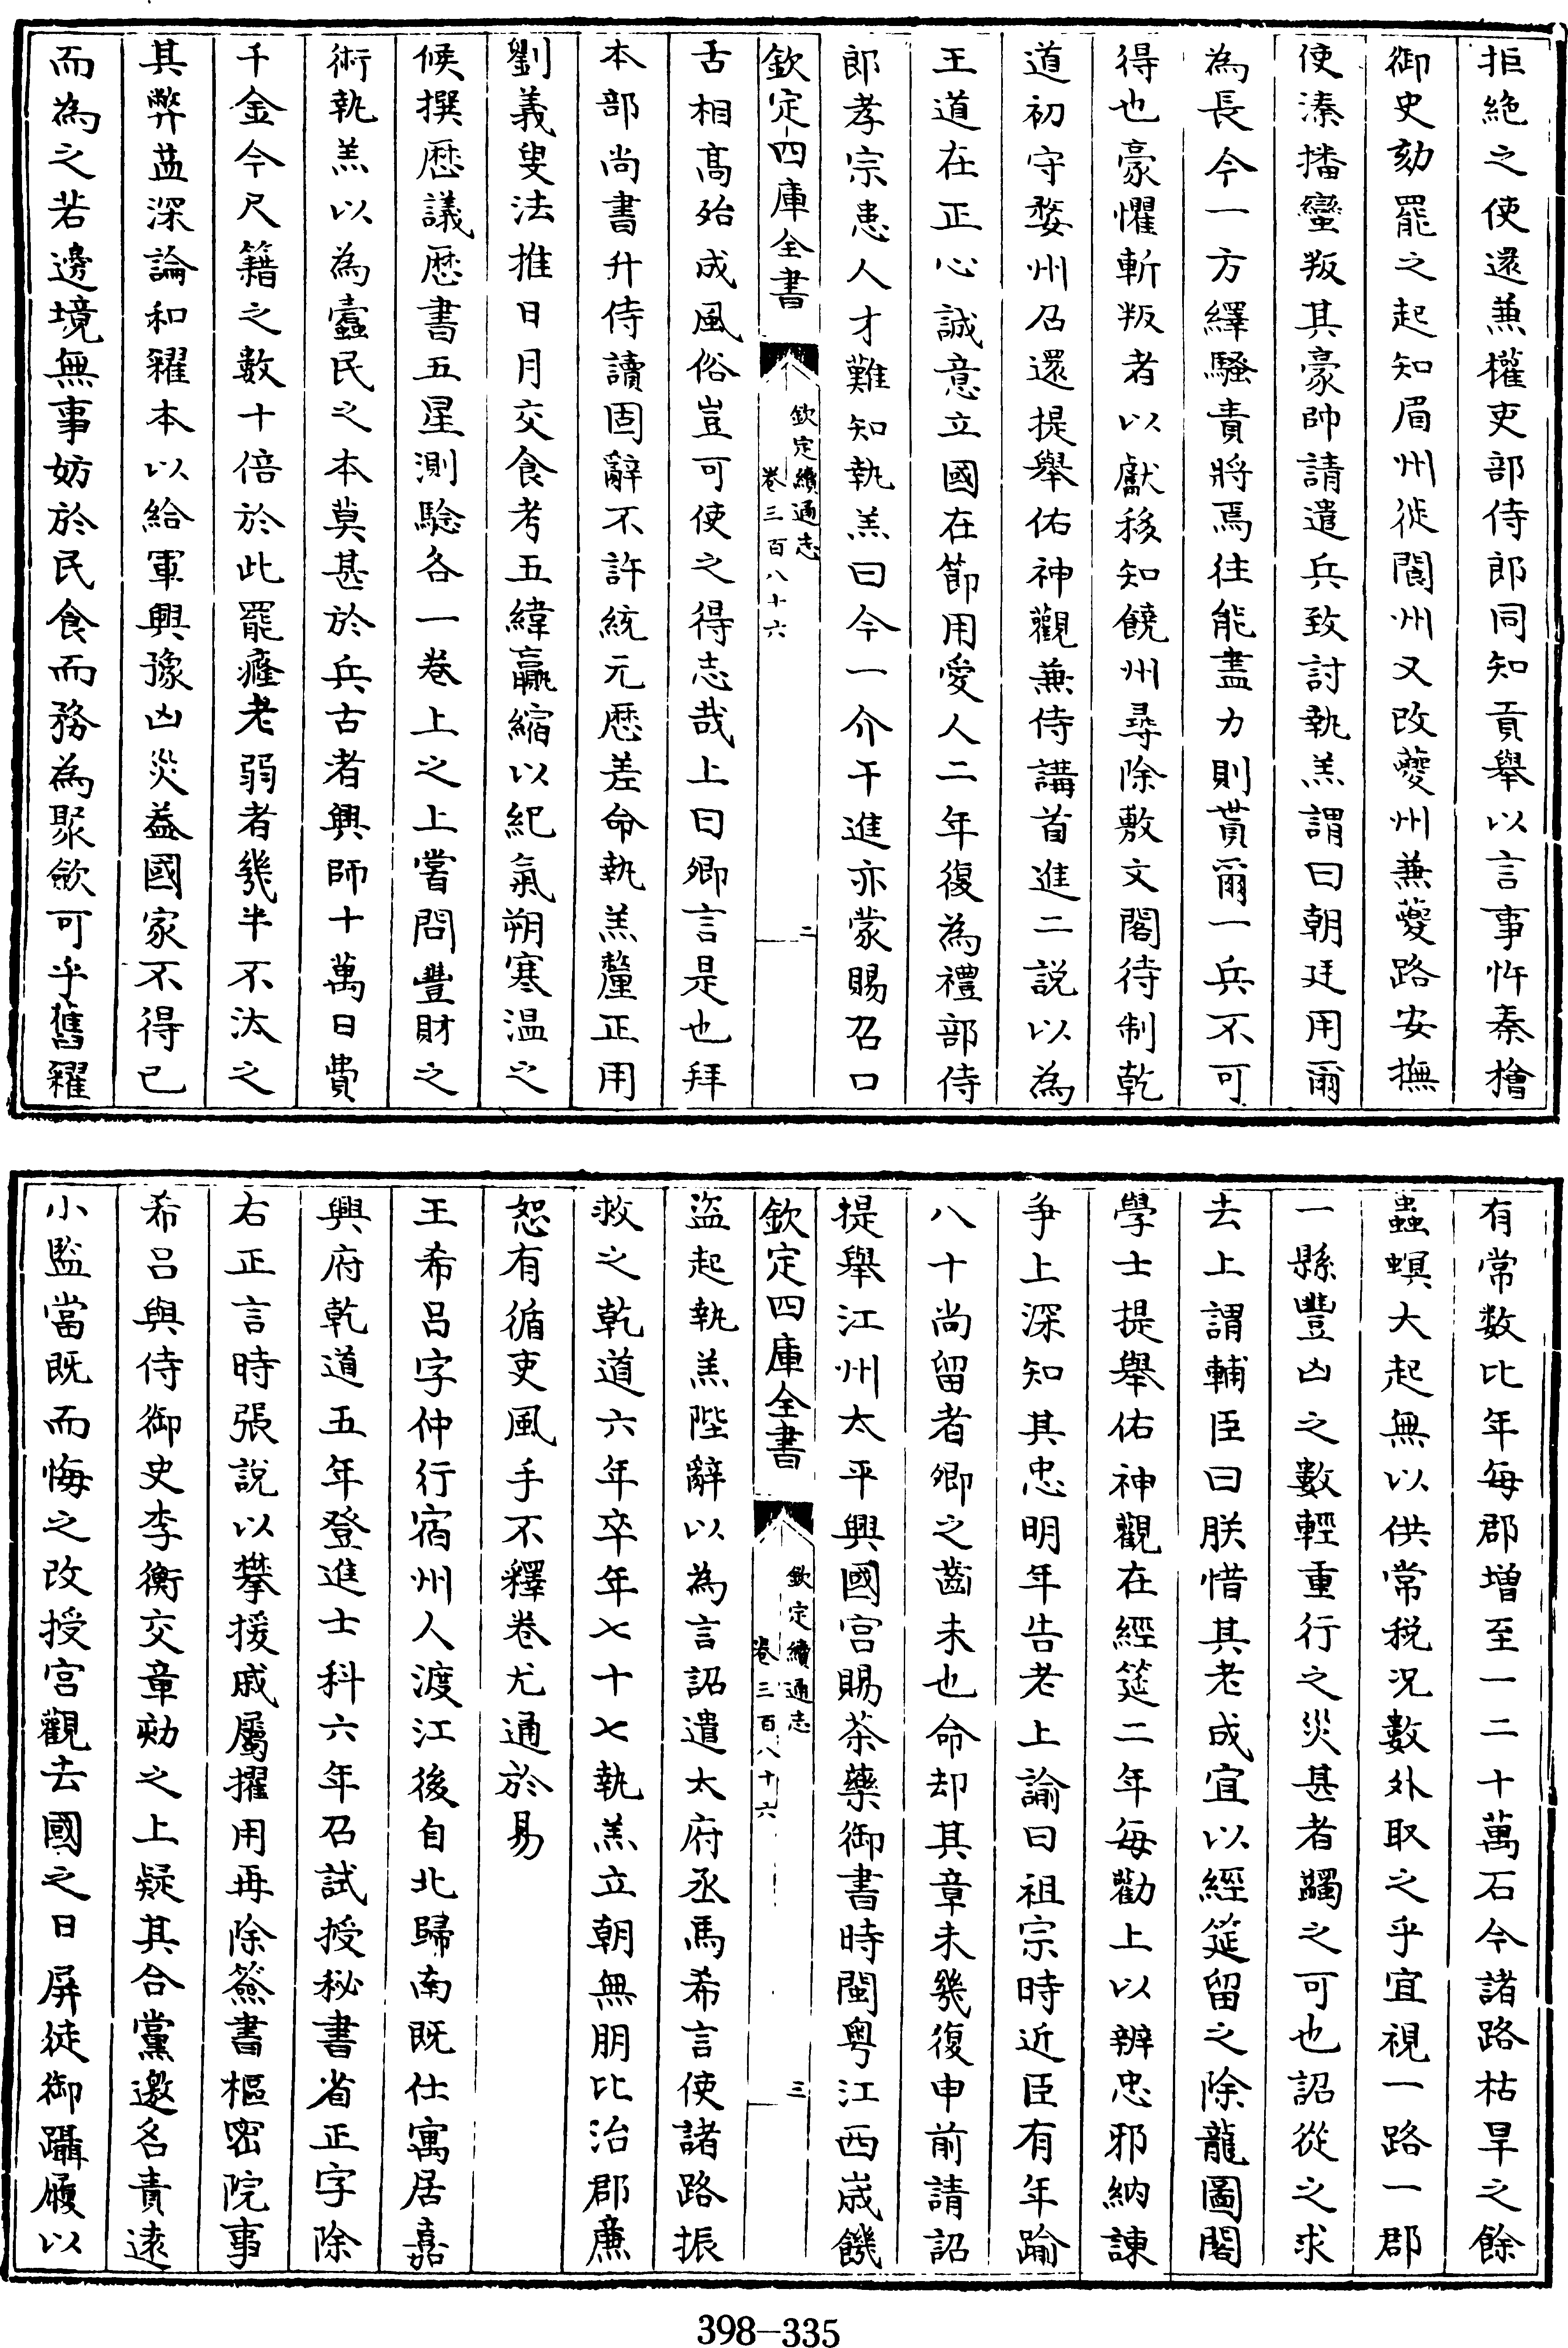 拒絶之使還兼權吏部侍郎同知貢舉以言事忤秦檜
御史劾罷之起知眉州徙閬州又改夔州兼夔路安撫
使溱播蠻叛其豪帥請遣兵致討執羔謂曰朝廷用爾
為長今一方繹騷責將焉往能盡力則貰爾一兵不可
得也豪懼斬叛者以獻移知饒州尋除敷文閣待制乾
道初守婺州召還提舉佑神觀兼侍講首進二説以為
王道在正心誠意立國在節用愛人二年復為禮部侍
郎孝宗患人才難知執羔曰今一介干進亦蒙賜召口
欽定四庫全書
欽定續通志
卷三百八十六
二
舌相髙殆成風俗豈可使之得志哉上曰卿言是也拜
本部尚書升侍讀固辭不許統元厯差命執羔釐正用
劉義叟法推日月交食考五緯贏縮以紀氣朔寒温之
候撰厯議厯書五星測驗各一卷上之上嘗問豐財之
術執羔以為蠹民之本莫甚於兵古者興師十萬日費
千金今尺籍之數十倍於此罷癃老弱者幾半不汰之
其弊益深論和糴本以給軍興豫凶災益國家不得已
而為之若邊境無事妨於民食而務為聚歛可乎舊糴
有常数比年毎郡増至一二十萬石今諸路枯旱之餘
蟲螟大起無以供常税况數外取之乎宜視一路一郡
一縣豐凶之數輕重行之災甚者蠲之可也詔從之求
去上謂輔臣曰朕惜其老成宜以經筵留之除龍圖閣
學士提舉佑神觀在經筵二年毎勸上以辨忠邪納諫
爭上深知其忠明年告老上諭曰祖宗時近臣有年踰
八十尚留者卿之齒未也命却其章未幾復申前請詔
提舉江州太平興國宫賜茶藥御書時閩粤江西歲饑
欽定四庫全書
欽定續通志
卷三百八十六
三
盜起執羔陛辭以為言詔遣太府丞馬希言使諸路振
救之乾道六年卒年七十七執羔立朝無朋比治郡廉
恕有循吏風手不釋卷尤通於易
王希吕字仲行宿州人渡江後自北歸南既仕寓居嘉
興府乾道五年登進士科六年召試授秘書省正字除
右正言時張説以攀援戚屬擢用再除簽書樞密院事
希吕與侍御史李衡交章劾之上疑其合黨邀名責逺
小監當既而悔之改授宫觀去國之日屏徒御躡履以
398-335